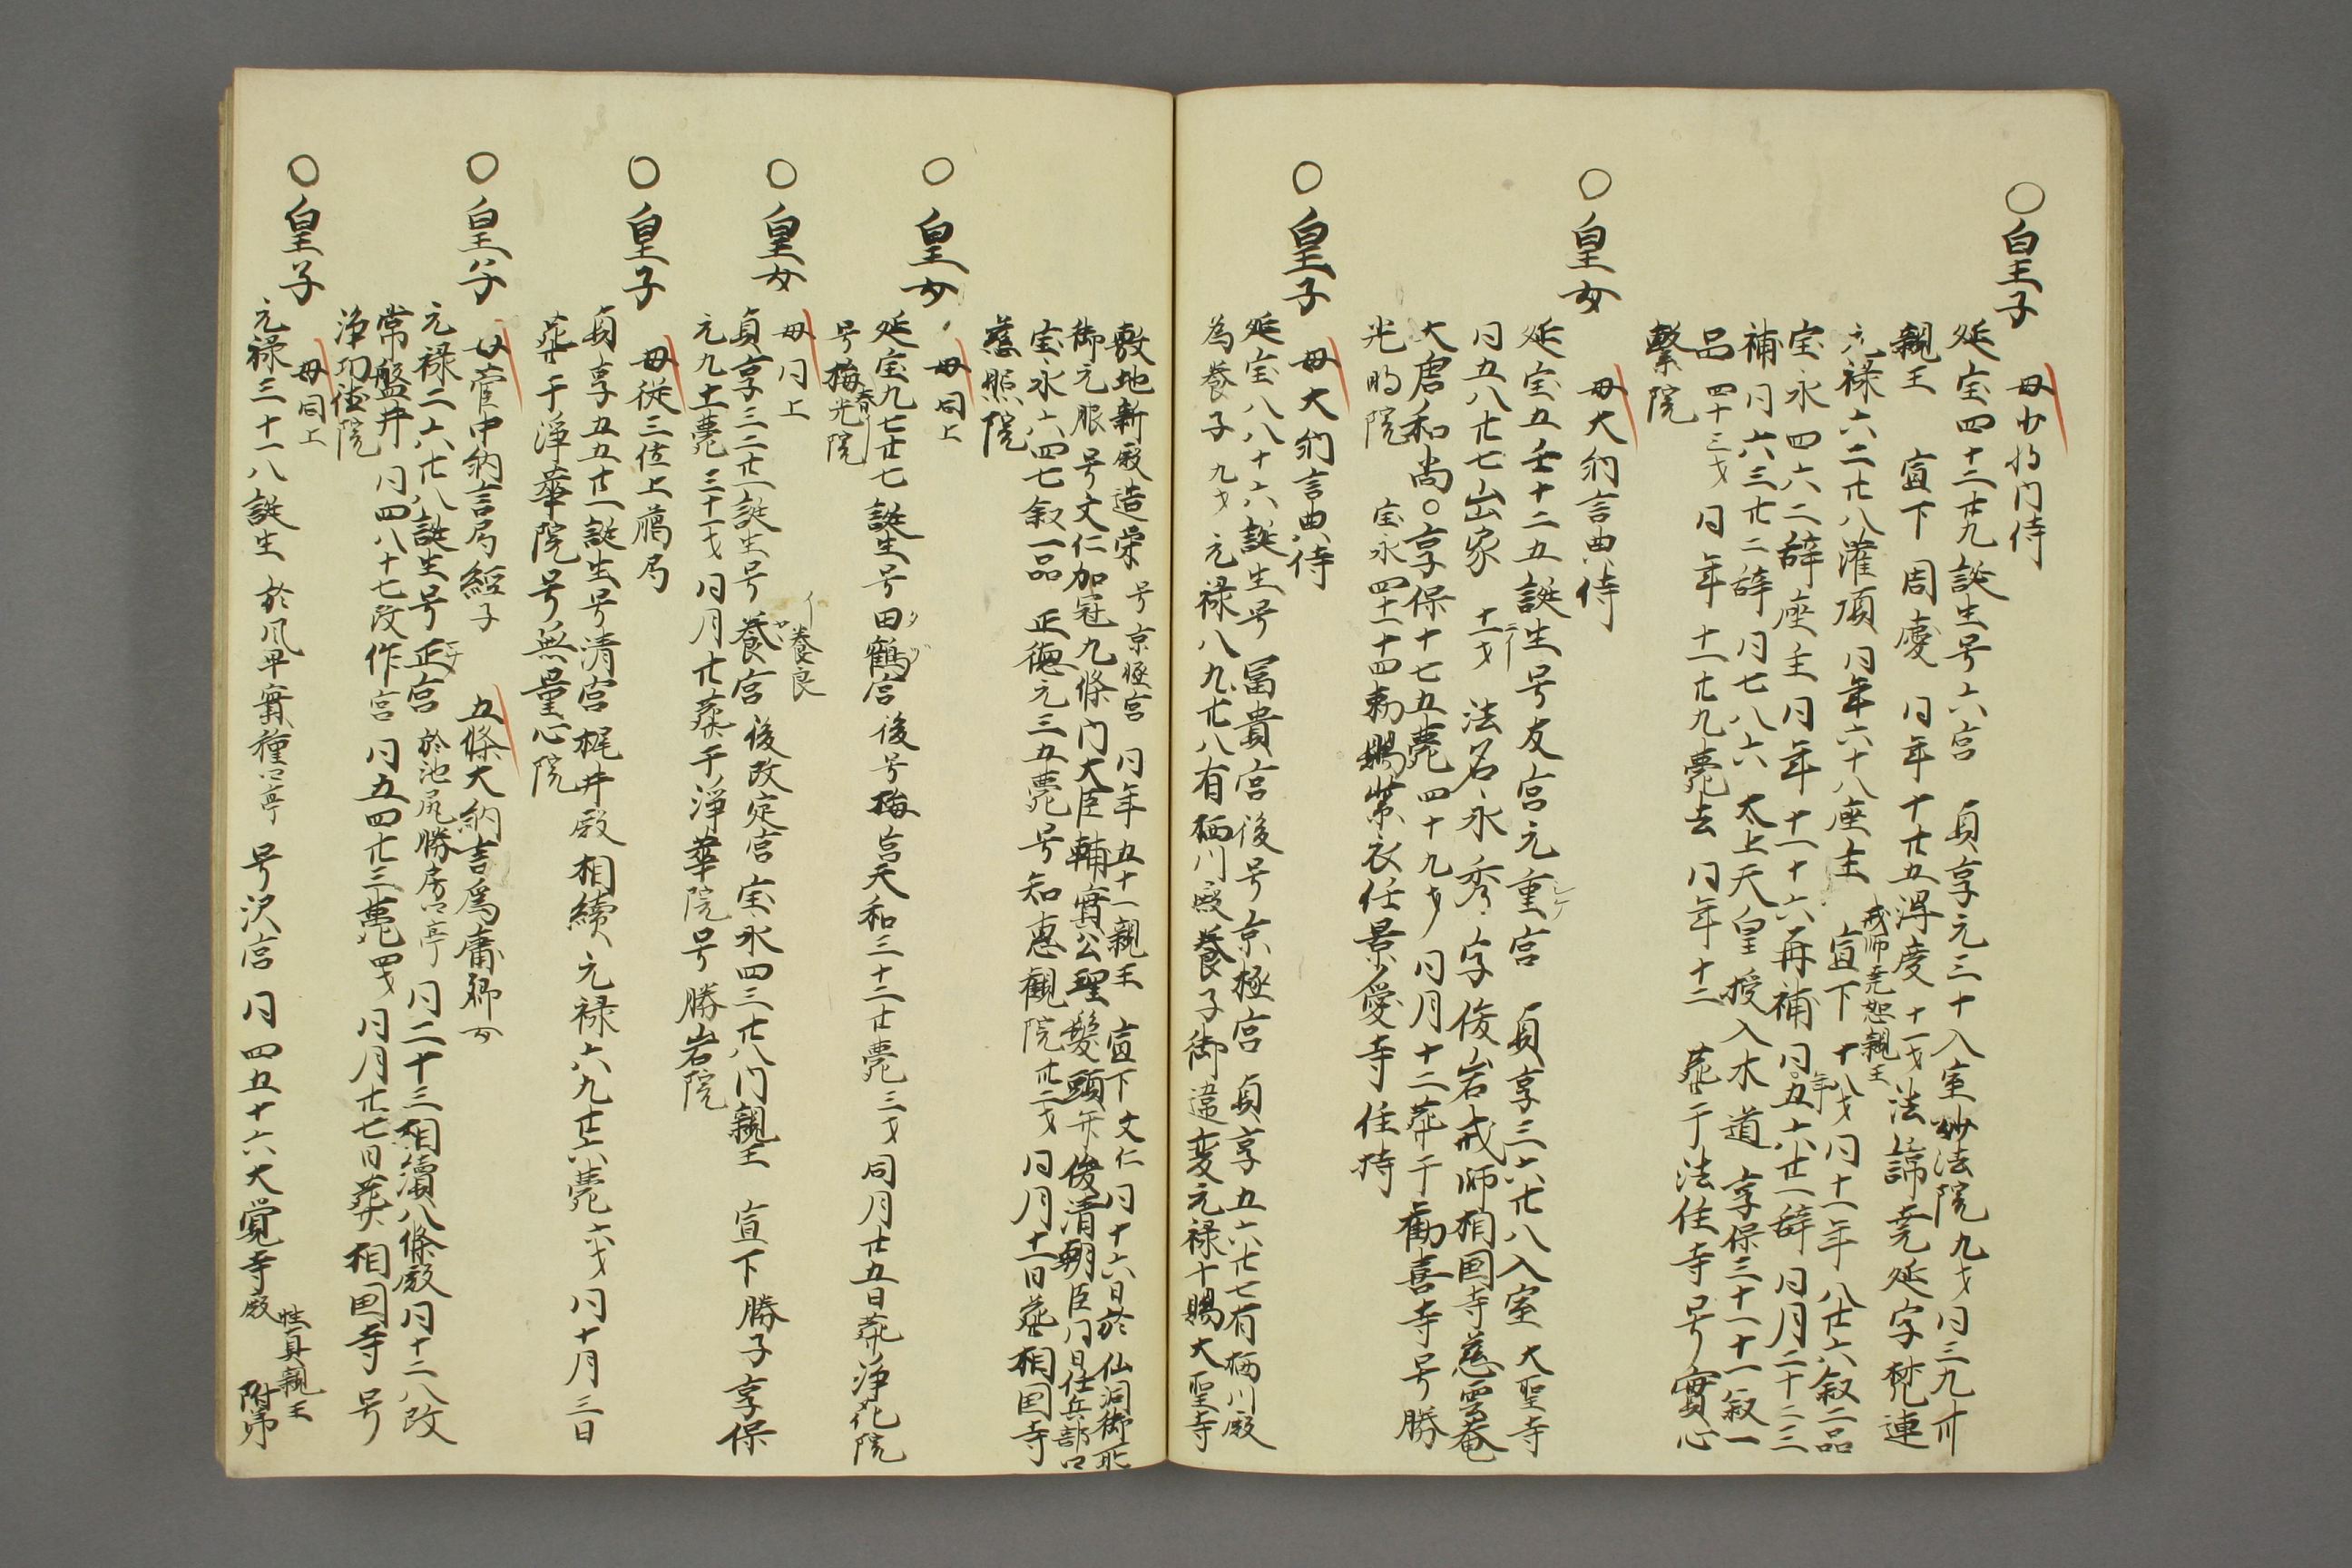 ○皇子　母少将内侍
延宝四十二廿九誕生号六宮　貞享元三十入室妙法院九才同三九廿
親王　宣下周慶　同年十廿五得度十一才法諱尭延字梵連
戒師尭恕親王
元禄六二廿八灌頂同年六十八座主　宣下十八才同十一年八廿六叙二品
宝永四六二辞座主同年十一十六再補同五六廿一辞同月二十二三
補同六三廿二辞同七八六太上天皇授入木道享保三十一十一叙一
品四十三才同年十一廿九薨去同年十二　葬于法住寺号實心
繫院
○皇女　母大納言典侍
延宝五壬十二五誕生号友宮元重宮　貞享三六廿八入室大聖寺
同五八廿七出家十二才　法名永秀字俊岩戒師相国寺慈雲菴
大唐和尚○享保十七五薨四十九才同月十二葬于勸喜寺号勝
光明院　宝永四十二十四勅賜紫衣任景愛寺住持
○皇子　母大納言典侍
延宝八八十六誕生号富貴宮後号京極宮　貞享五六廿七有栖川殿
為養子九才元禄八九廿八有栖川殿養子御違変元禄十賜大聖寺
敷地新殿造栄号京極宮　同年五十一親王　宣下文仁同十六日於仙洞御所
御元服号文仁加冠九條内大臣輔實公理髪頭弁俊清朝臣同日任兵部口
宝永六四七叙一品　正徳元三五薨号知恵観院廿二才同月十一日葬相国寺
慈照院
○皇女　母同上
延宝九七廿七誕生号田鶴宮後号梅宮天和三十二廿薨三才同月廿五日葬浄花院
号梅光院
春
○皇女　母同上
イ養良
貞享三二廿一誕生号養宮後改定宮　宝永四三廿八内親王　宣下勝子享保
元九十二薨三十一才同月廿葬于浄華院号勝岩院
○皇子　母従三位上﨟局
貞享五五廿一誕生号清宮梶井殿相續元禄六九廿六薨六才同十月三日
葬于浄華院号無量心院
○皇子　母菅中納言局經子　五條大納言為庸卿女
元禄二六廿八誕生号正宮於池尻勝房口亭　同二十三相續八條殿同十二八改
常盤井同四八十七改作宮　同五四廿三薨四才同月廿七日葬相国寺号
浄功徳院
○皇子　母同上
元禄三十一八誕生於風早實種口亭　号沢宮　同四五十六大覚寺殿性真親王附弟